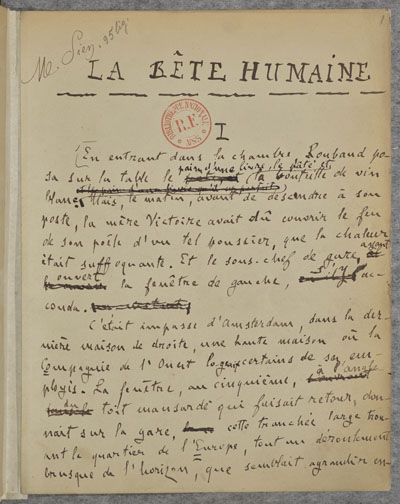 1
LA BÊTE HUMAINE
BIBLIOTHÈQUE NATIONALE
R.F.
MSS
I
En entrant dans la chambre, Roubaud po-
pain d'une livre, le pâté et
sa sur la table le la bouteille de vin
blanc. Mais, le matin, avant de descendre à son
poste, la mère Victoire avait dû couvrir le feu
de son poêle d'un tel poussier, que la chaleur
était suffoquante. Et le sous-chef de gare, ayant
ouvert la fenêtre de gauche, s'y ac-
couda.
C'était impasse d'Amsterdam, dans la der-
nière maison de droite, une haute maison où la
Compagnie de l'Ouest logeait certains de ses em-
ployés. La fenêtre, au cinquième, à l'angle
du toit mansardé qui faisait retour, don-
nait sur la gare, cette tranchée large trou-
ant le quartier de l'Europe, tout un déroulement
brusque de l'horizon, que semblait agrandir en-